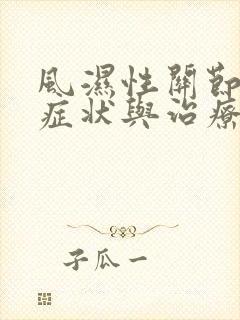 風濕性關節
症狀與治療
子瓜一